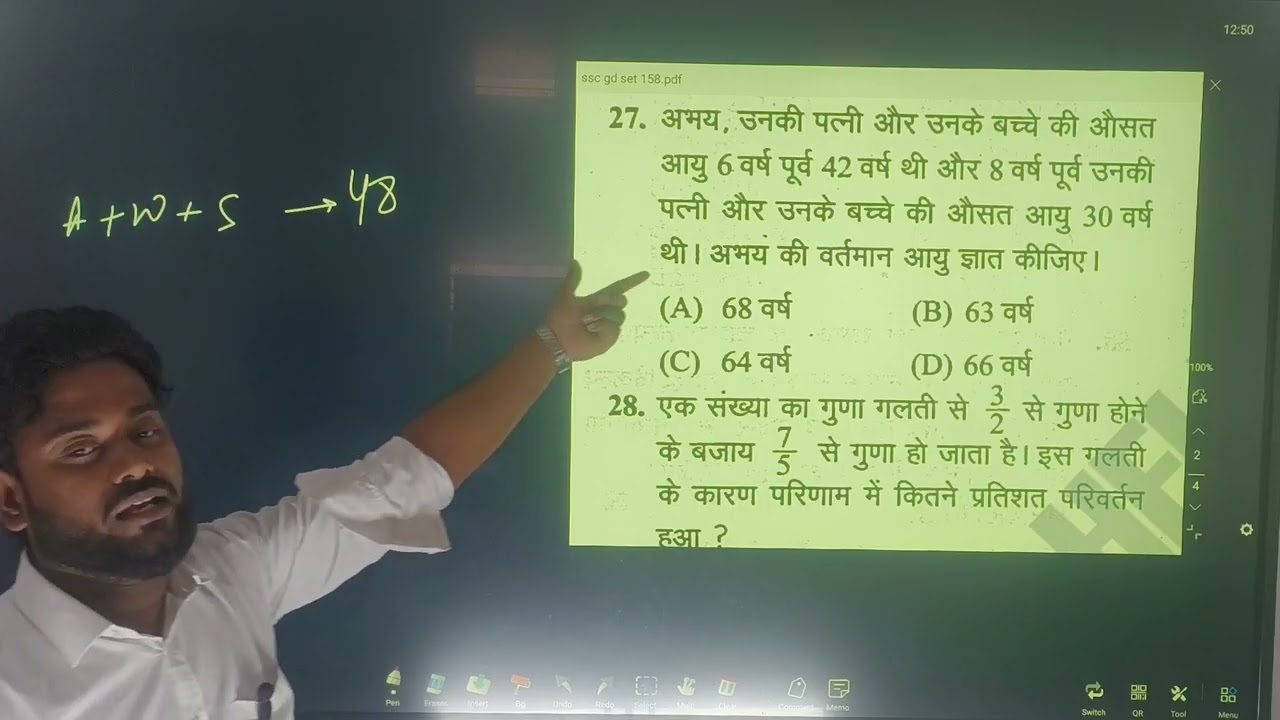 12:50
ssc gd set 158.pdf
A + W + S → 48
27. अभय, उनकी पत्नी और उनके बच्चे की औसत
आयु 6 वर्ष पूर्व 42 वर्ष थी और 8 वर्ष पूर्व उनकी
पत्नी और उनके बच्चे की औसत आयु 30 वर्ष
थी। अभय की वर्तमान आयु ज्ञात कीजिए।
(A) 68 वर्ष (B) 63 वर्ष
(C) 64 वर्ष (D) 66 वर्ष
28. एक संख्या का गुणा गलती से 3/2 से गुणा होने
के बजाय 7/5 से गुणा हो जाता है। इस गलती
के कारण परिणाम में कितने प्रतिशत परिवर्तन
हुआ ?
100%
2
4
Pen Eraser Insert Bg Undo Redo Select Clear Comment Memo
Switch QR Tool Menu